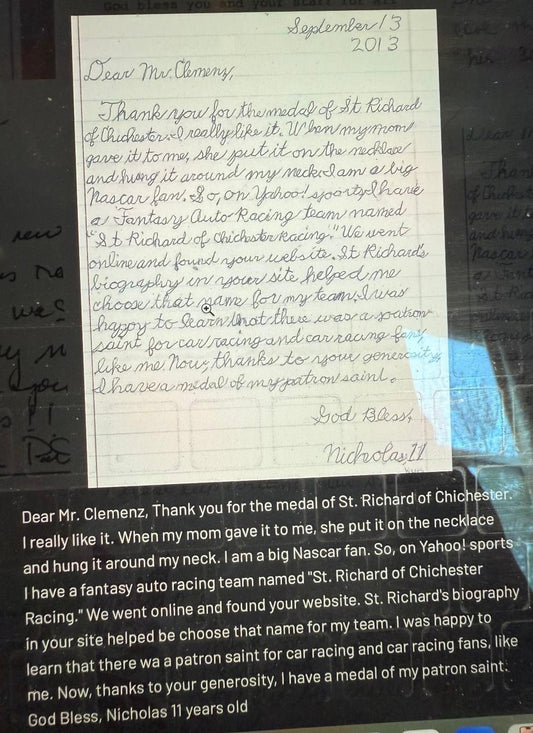 God bless you and your staff for All
September 13
2013
Dear Mr. Clemenz,
Thank you for the medal of St Richard
of Chichester. I really like it. When my mom
gave it to me, she put it on the necklace
and hung it around my neck. I am a big
Nascar fan. So, on Yahoo! sports I have
a Fantasy Auto Racing team named
"St Richard of Chichester Racing." We went
online and found your website. St. Richard's
biography in your site helped me
choose that name for my team. I was
happy to learn that there was a patron
saint for car racing and car racing fans,
like me. Now, thanks to your generosity,
I have a medal of my patron saint.
God Bless,
Nicholas, 11
Dear Mr. Clemenz, Thank you for the medal of St. Richard of Chichester.
I really like it. When my mom gave it to me, she put it on the necklace
and hung it around my neck. I am a big Nascar fan. So, on Yahoo! sports
I have a fantasy auto racing team named "St. Richard of Chichester
Racing." We went online and found your website. St. Richard's biography
in your site helped be choose that name for my team. I was happy to
learn that there wa a patron saint for car racing and car racing fans, like
me. Now, thanks to your generosity, I have a medal of my patron saint.
God Bless, Nicholas 11 years old